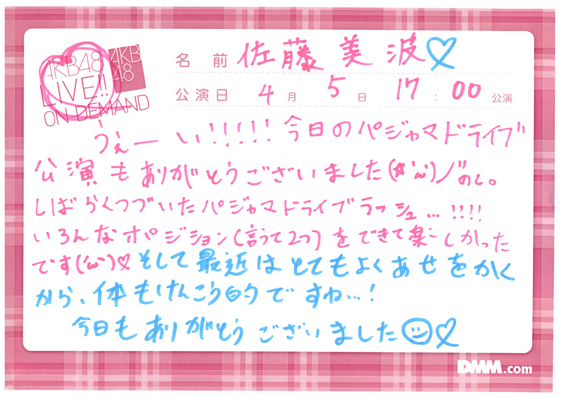 AKB48
LIVE!!
ON DEMAND
AKB
48
名前 佐藤美波♡
公演日 4月 5日 17:00 公演
うぇーい!!!!! 今日のパジャマドライブ
公演もありがとうございました(*'ω')ノ"のし。
しばらくつづいたパジャマドライブラッシュ…!!!!
いろんなポジション(言うて2つ)をできて楽しかった
です('ω')♡そして最近はとてもよくあせをかく
から、体もけんこう的ですね…!
今日もありがとうございました☺♡
DMM.com